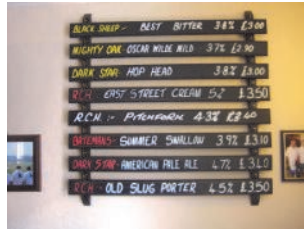 BLACK SHEEP - BEST BITTER 3.8% £3.00
MIGHTY OAK - OSCAR WILDE MILD 3.7% £2.90
DARK STAR - HOP HEAD 3.8% £3.00
RCH. EAST STREET CREAM 5.2 £3.50
R.C.H. :- PITCHFORK 4.3% £3.40
BATEMANS - SUMMER SWALLOW 3.9% £3.10
DARK STAR - AMERICAN PALE ALE 4.7% £3.40
R.C.H - OLD SLUG PORTER 4.5% £3.50